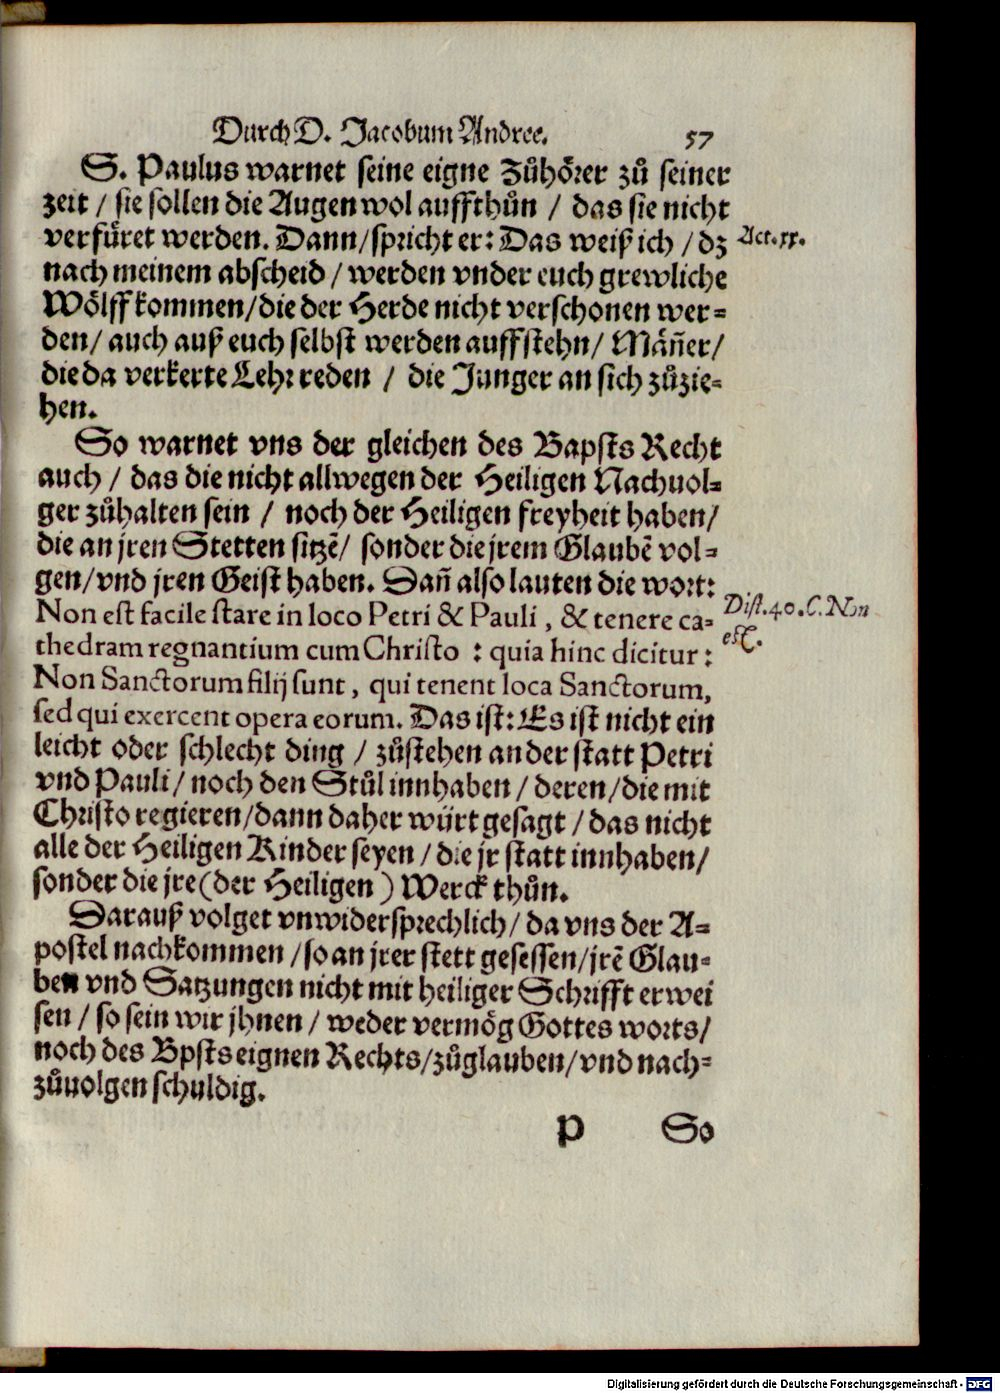 Durch D. Jacobum Andree. 57
S. Paulus warnet seine eigne Zůhörer zů seiner
zeit / sie sollen die Augen wol auffthůn / das sie nicht
verfüret werden. Dann / spricht er: Das weiß ich / dz
Act. xx.
nach meinem abscheid / werden vnder euch grewliche
Wölff kommen / die der Herde nicht verschonen wer=
den / auch auß euch selbst werden auffstehn / Mäñer /
die da verkerte Lehr reden / die Junger an sich zůzie=
hen.
So warnet vns der gleichen des Bapsts Recht
auch / das die nicht allwegen der Heiligen Nachuol=
ger zůhalten sein / noch der Heiligen freyheit haben /
die an jren Stetten sitzẽ / sonder die jrem Glaubẽ vol=
gen / vnd jren Geist haben. Dañ also lauten die wort:
Non est facile stare in loco Petri & Pauli, & tenere ca=
Dist. 40. C. Non
est.
thedram regnantium cum Christo : quia hinc dicitur :
Non Sanctorum filij sunt, qui tenent loca Sanctorum,
sed qui exercent opera eorum. Das ist: Es ist nicht ein
leicht oder schlecht ding / zůstehen an der statt Petri
vnd Pauli / noch den Stůl innhaben / deren / die mit
Christo regieren / dann daher würt gesagt / das nicht
alle der Heiligen Kinder seyen / die jr statt innhaben /
sonder die jre (der Heiligen) Werck thůn.
Darauß volget vnwidersprechlich / da vns der A=
postel nachkommen / so an jrer stett gesessen / jrẽ Glau=
ben vnd Satzungen nicht mit heiliger Schrifft erwei
sen / so sein wir jhnen / weder vermög Gottes worts /
noch des Bpsts eignen Rechts / zůglauben / vnd nach=
zůuolgen schuldig.
P So
Digitalisierung gefördert durch die Deutsche Forschungsgemeinschaft - DFG